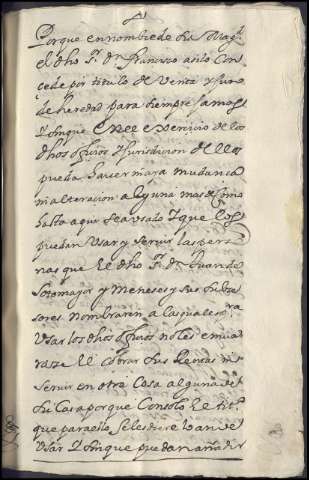 Porque en nombre de su Magd
el dho Sr. Dn francisco asilo Con
cede por titulo de Venta y Juro
de heredad para siempre Jamas
y Sin que en el exercicio de los
dhos ofiçios y Jurisdicion de ellos
pueda hacer mara mudança
ni alteracion alguna mas de como
hasta aqui se a usado y que los
puedan Usar y servir las perso
nas que el dho Sr. Dn Juan de
Sotomayor y Meneses y sus subce
sores nombraren a las quales
Usar los dhos ofiçios no les emva
rase el cobrar sus Rentas ni
servir en otra Cosa alguna de
su Casa porque Con solo el titº
que para ello se les diere han de
Usar y Sin que puedan añadir